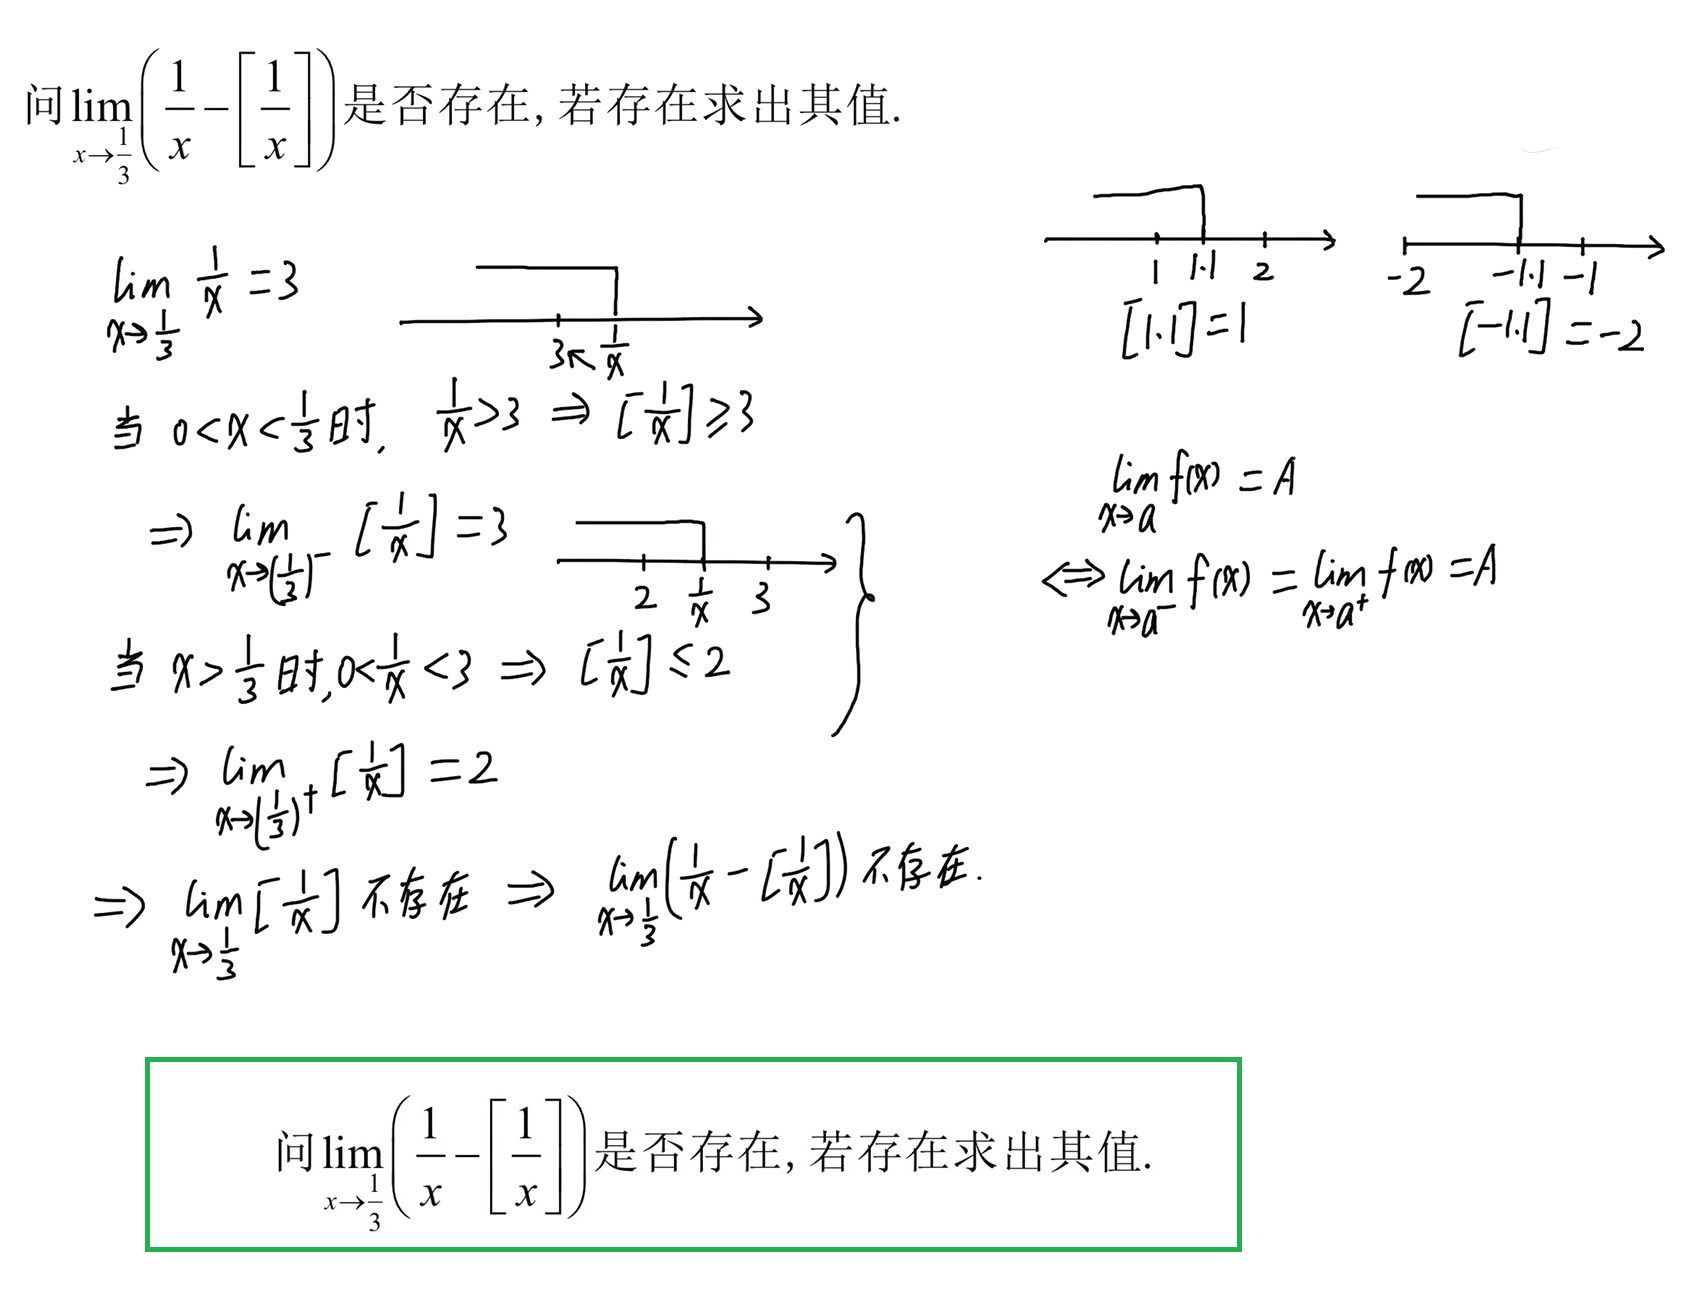 问 lim_{x→1/3} (1/x − [1/x]) 是否存在, 若存在求出其值.
lim_{x→1/3} 1/x = 3
3 ↖ 1/x
当 0<x<1/3 时, 1/x>3 ⇒ [1/x]⩾3
⇒ lim_{x→(1/3)⁻} [1/x] = 3
2 1/x 3
当 x>1/3 时, 0<1/x<3 ⇒ [1/x] ≤ 2
⇒ lim_{x→(1/3)⁺} [1/x] = 2
⇒ lim_{x→1/3} [1/x] 不存在 ⇒ lim_{x→1/3} (1/x − [1/x]) 不存在.
1 1.1 2
[1.1]=1
-2 -1.1 -1
[-1.1] = -2
lim_{x→a} f(x) = A
⟺ lim_{x→a⁻} f(x) = lim_{x→a⁺} f(x) = A
问 lim_{x→1/3} (1/x − [1/x]) 是否存在, 若存在求出其值.